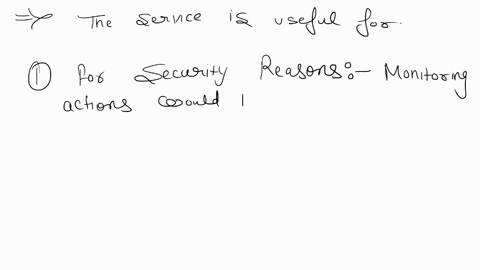 ⇒ The service is useful for.
① For Security Reasons:- Monitoring
actions could